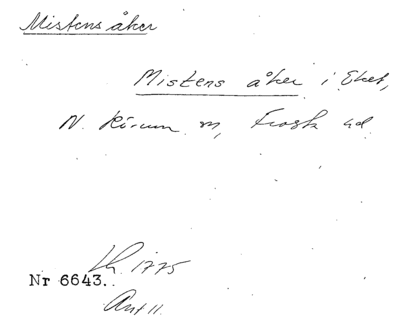 Mistens åker
Mistens åker i Eket,
N. Rörum sn, Frosta hd
Lh. 1775
Nr 6643.
Ant 11.